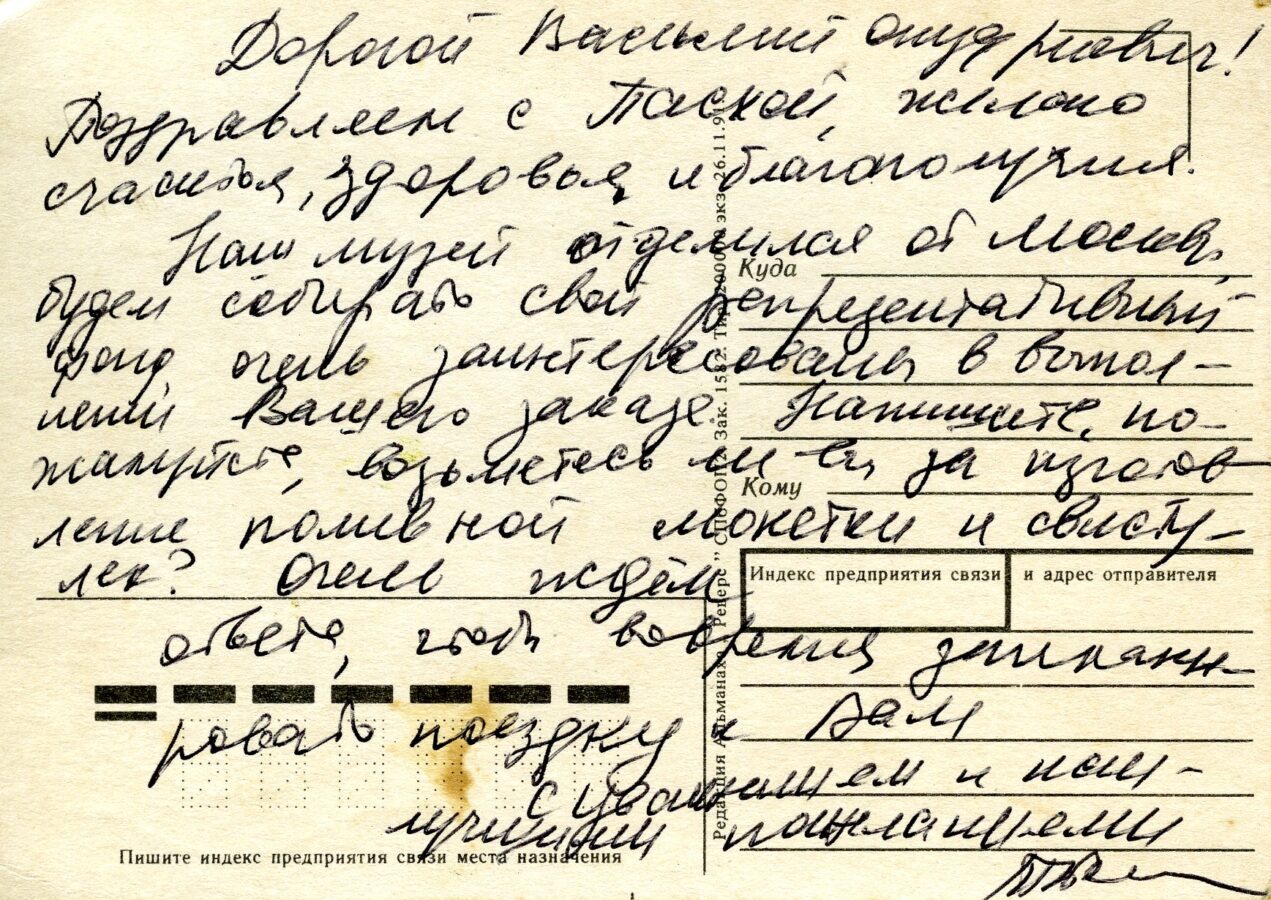 Дорогой Василий
Поздравляем с Пасхой, желаю
счастья, здоровья, и благополучия.
Наш музей отделился от Москвы,
будем собирать свой репрезентативный
фонд, очень заинтересованы в выпол-
нении Вашего заказа. Напишите, по-
жалуйста, возьметесь ли Вы за изготов-
ление поливной монетки и свисту-
лек? Очень ждём
ответа, чтоб вовремя запланн-
ровать поездку к Вам
С уважением и наи-
лучшими пожеланиями
Куда
Кому
Индекс предприятия связи и адрес отправителя
Пишите индекс предприятия связи места назначения
Редакция Альманаха „Реверс” СППФОП2. Зак. 1582. Тир. 2000 экз. 26.11.91г.